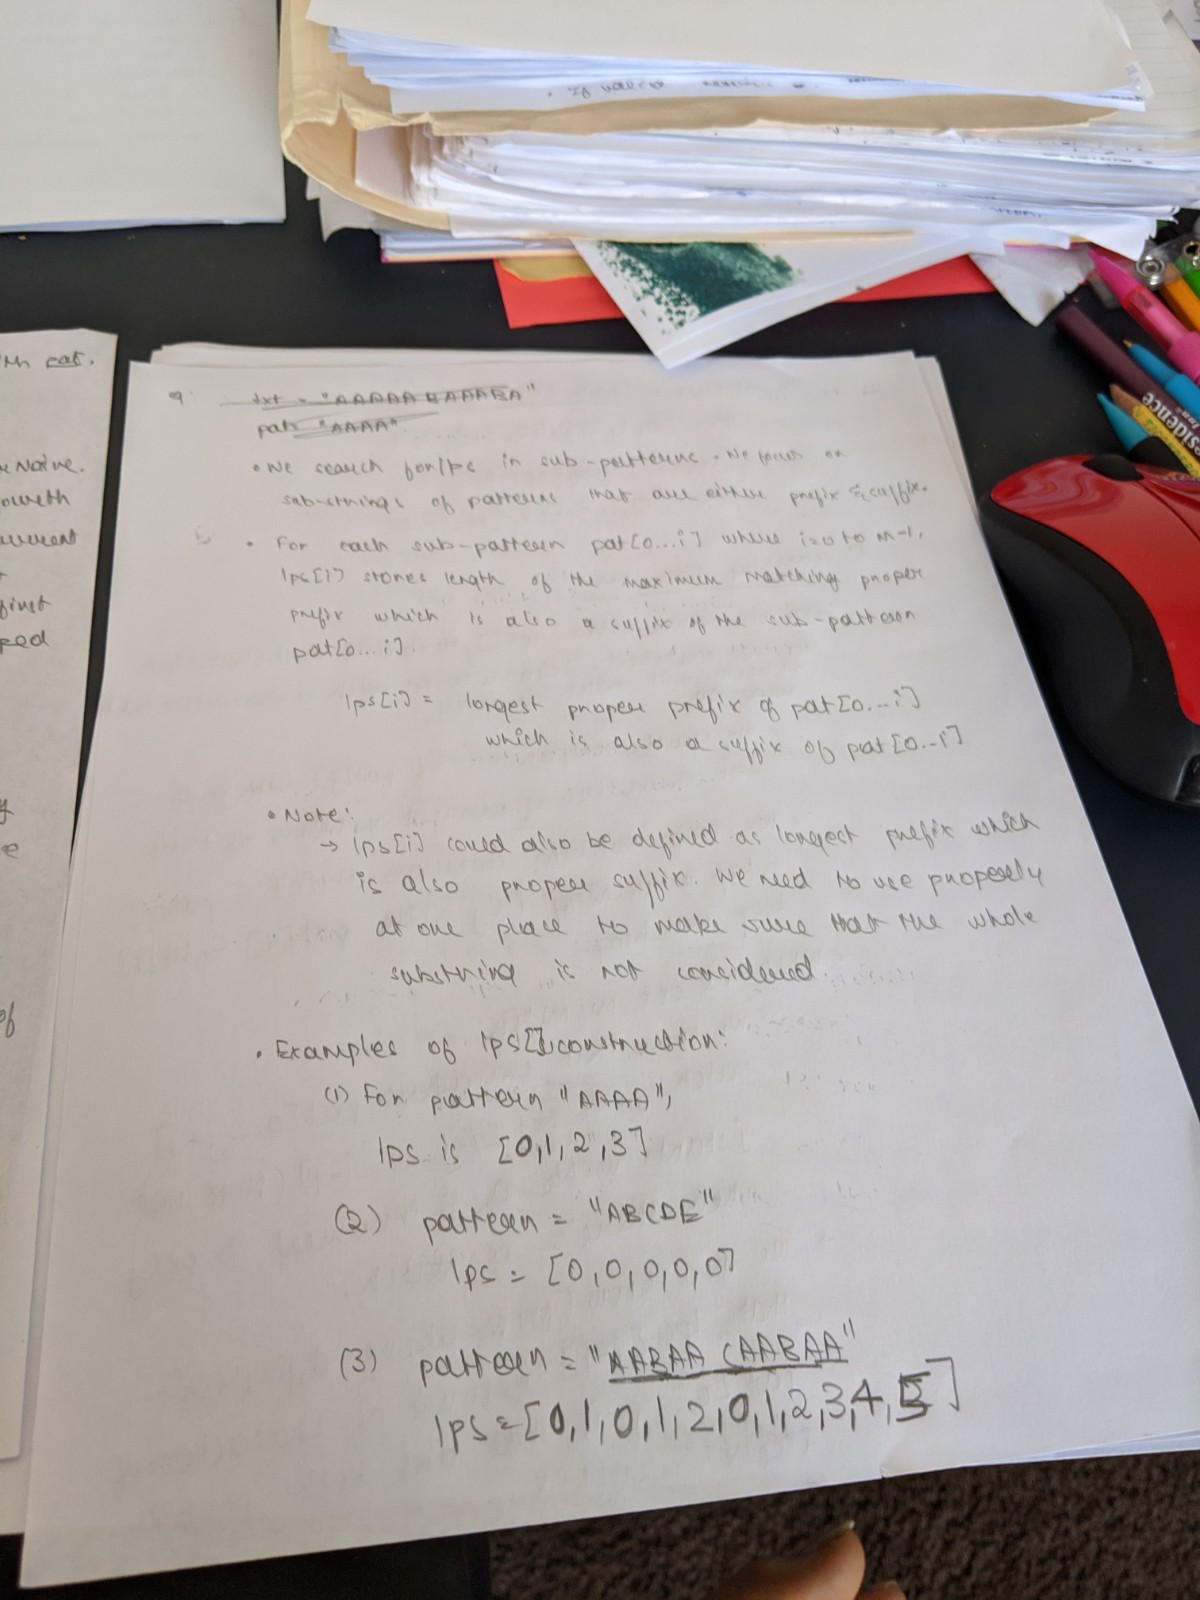 txt = "AAAAABAAABA"
pat= "AAAA"
• We search for lps in sub-patterns. We focus on
sub-strings of patterns that are either prefix & suffix.
• For each sub-pattern pat[0...i] where i=0 to m-1,
lps[i] stores length of the maximum matching proper
prefix which is also a suffix of the sub-pattern
pat[0...i].
lps[i] = longest proper prefix of pat[0...i]
which is also a suffix of pat[0..i]
• Note:
→ lps[i] could also be defined as longest prefix which
is also proper suffix. We need to use properly
at one place to make sure that the whole
substring is not considered.
• Examples of lps[] construction:
(1) For pattern "AAAA",
lps is [0,1,2,3]
(2) pattern = "ABCDE"
lps = [0,0,0,0,0]
(3) pattern = "AABAA CAABAA"
lps = [0,1,0,1,2,0,1,2,3,4,5]
pat.
Naive.
of
sidence